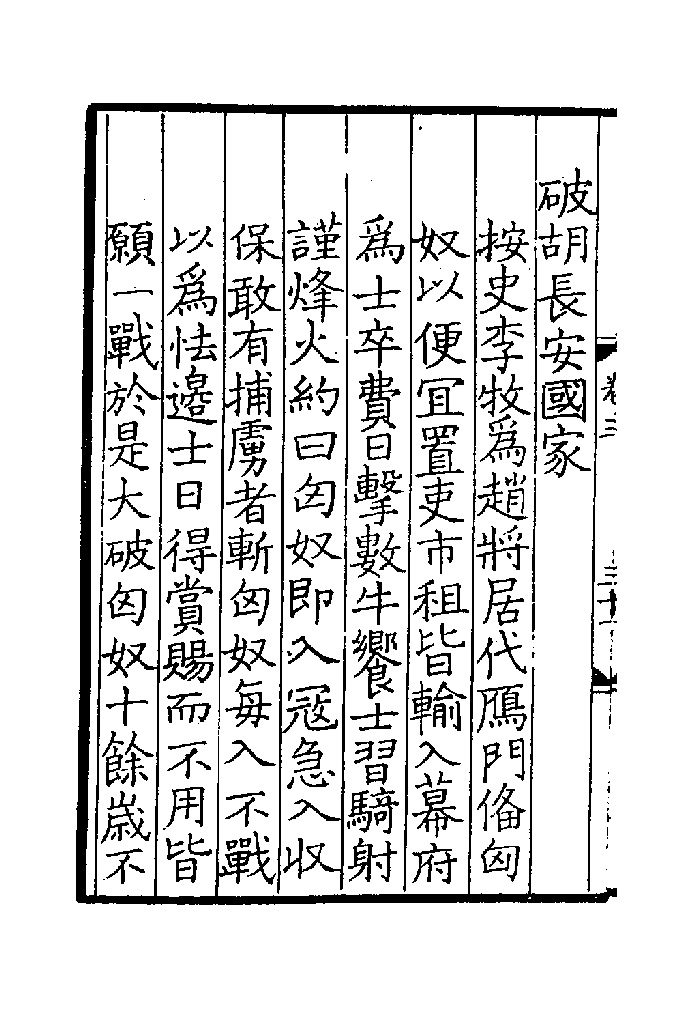 破胡長安國家
按史李牧爲趙將居代鴈門俻匈
奴以便宜置吏市租皆輸入幕府
爲士卒費日擊數牛饗士習騎射
謹烽火約曰匈奴即入冦急入収
保敢有捕虜者斬匈奴每入不戰
以爲怯邊士日得賞賜而不用皆
願一戰於是大破匈奴十餘嵗不